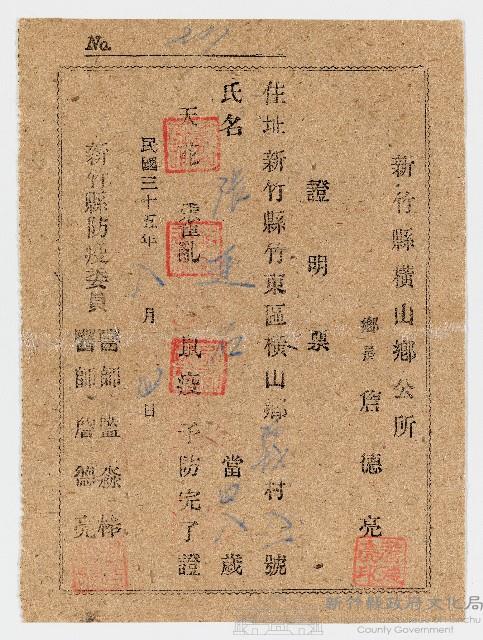 No. 221
新竹縣橫山鄉公所
鄉長 詹德亮
證明票
住址 新竹縣竹東區橫山鄉 義村 號
氏名 張 當 歲
天花 霍亂 鼠疫 予防完了證
民國三十五年 八月 日
新竹縣防疫委員
醫師 藍森
醫師 詹德亮
新竹縣政府文化局
County Government